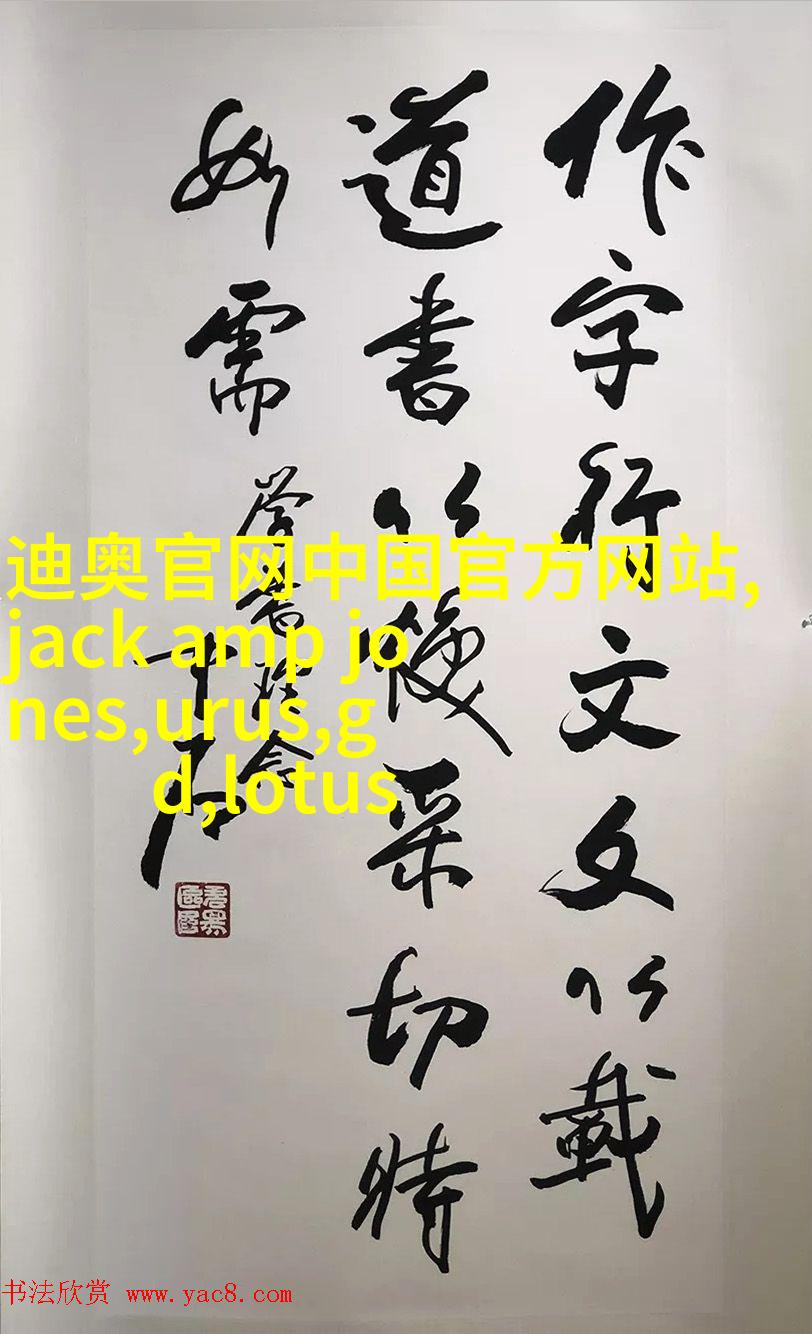 作字行文文以載
道書以後采切時
如需
学書理念
迪奥官网中国官方网站,
jack amp jo
nes,urus,g
d,lotus
书法欣赏 www.yac8.com